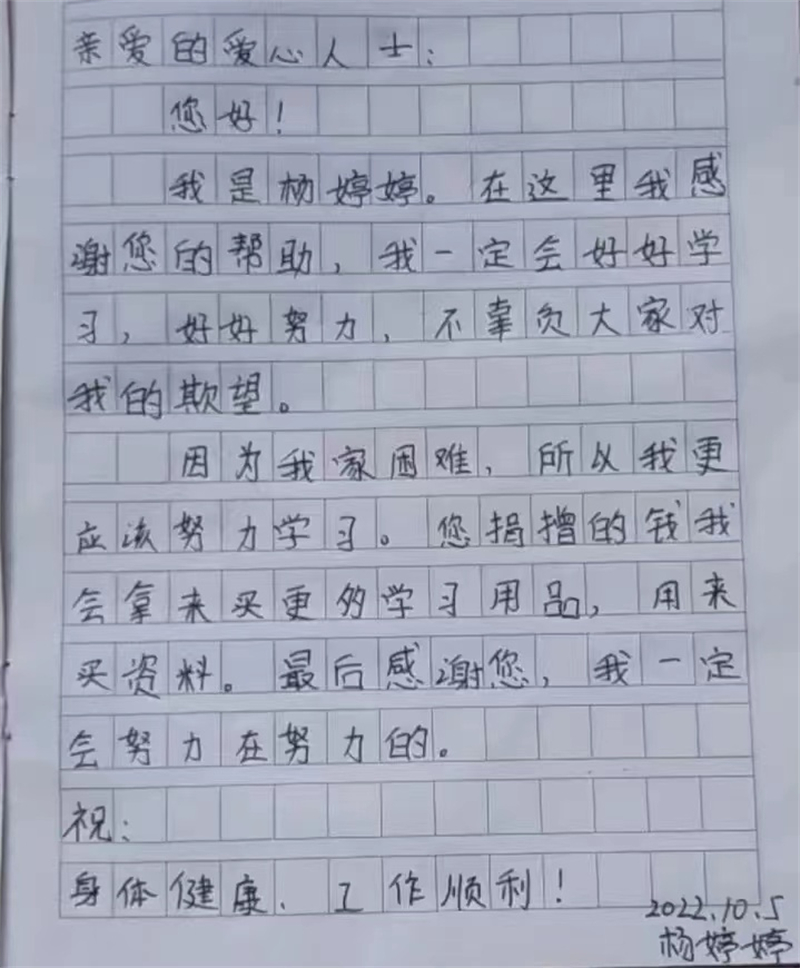 亲爱的爱心人士:
您好!
我是杨婷婷。在这里我感
谢您的帮助,我一定会好好学
习,好好努力,不辜负大家对
我的欺望。
因为我家困难,所以我更
应该努力学习。您捐增的钱我
会拿来买更多学习用品,用来
买资料。最后感谢您,我一定
会努力在努力的。
祝:
身体健康、工作顺利!
2022.10.5
杨婷婷